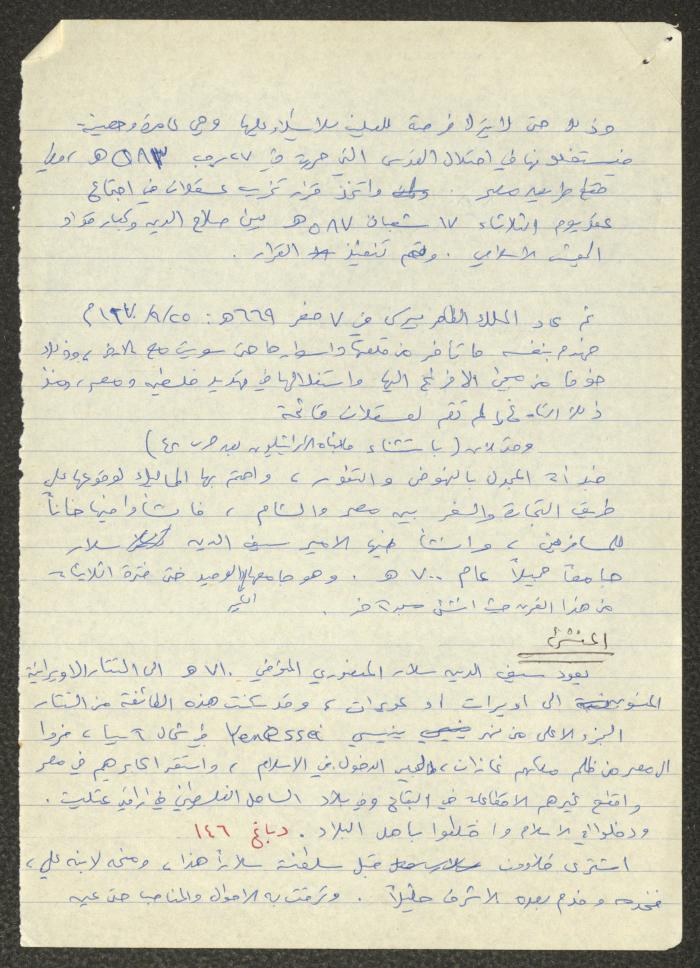 وذلك حتى لا يترك فرصة للصليبيين للاستيلاء عليها وهي عامرة وحصينة
فيستغلونها في احتلال القدس التي حررت في ٢٧ رجب ٥٨٣ هـ ،
طريق مصر . واتخذ قرار تخريب عسقلان في اجتماع
عقد يوم الثلاثاء ١٧ شعبان ٥٨٧ هـ بين صلاح الدين وكبار قواد
الجيش الاسلامي . وتم تنفيذ القرار .
ثم عاد الملك الظاهر بيبرس في ٧ صفر ٦٦٩ هـ : ٢٥/٩/١٢٧٠ م
فهدم بنفسه ما تأخر من قلعتها واسوارها حتى سويت مع الارض ، وذلك
خوفا من مجيء الافرنج اليها واستغلالها في تهديد فلسطين ومصر ، ومنذ
ذلك لم تقم لعسقلان قائمة
وحتى الآن ( باستثناء ما انشأه الاسرائيليون بعد حرب ٤٨ )
اخذت المجدل بالنهوض والتطور ، واهتم بها المماليك لوقوعها على
طريق التجارة والسفر بين مصر والشام ، فانشأوا فيها خاناً
للمسافرين ، وانشأ فيها الامير سيف الدين سلار
جامعاً جميلاً عام ٧٠٠ هـ . وهو جامعها الكبير الوحيد حتى فترة الثلاثينات
من هذا القرن حيث انشئ مسجد آخر .
المنشئ
يعود سيف الدين سلار المنصوري المتوفي ٧١٠ هـ الى التتار الاويراتية
المنسوبين الى اويرات او عويرات ، وقد سكنت هذه الطائفة من التتار
الجزء الاعلى من نهر ينيسي Yenessei في شمال آسيا ، فروا
الى مصر من ظلم ملكهم غازان ، طالبين الدخول في الاسلام ، واستقر اكابرهم في مصر
واقطع غيرهم الاقطاعات في البقاع وفي بلاد الساحل الفلسطيني في اراضي عتليت .
ودخلوا في الاسلام واختلطوا باهل البلاد . دباغ ١٤٦
اشترى قلاوون قبل سلطنته سلاراً هذا ، ومنحه لابنه علي ،
فخدمه وخدم بعده الاشرف خليلاً . وترقت به الاحوال والمناصب حتى عينه